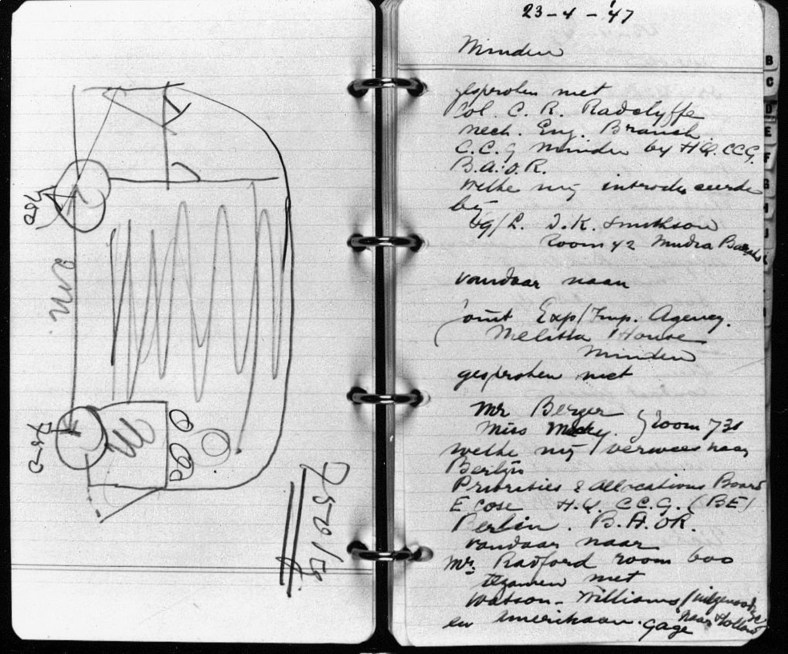 2 m.
750
750
750 kg.
23-4-'47
Minden
gesproken met
Col. C. R. Radclyffe
Mech. Eng. Branch
C.C.G Minden by H.Q. CCG.
B.A.O.R.
welke mij introduceerde
bij
J.K. Smithson
Room 42 Mudra
vandaar naar
Joint Exp/Imp. Agency.
Melitta House
Minden
gesproken met
Mr Berger
Miss Micky. } Room 731
welke mij verwees naar
Berlijn
Priorities & Allocations Board
E cose H.Q. C.C.G. (BE)
Berlin. B.A.OR.
vandaar naar
Mr. Radford room 600
tezamen met
Watson-Williams /
naar Holland
en Amerikaan. Gage
B
C
D
E
F
G
H